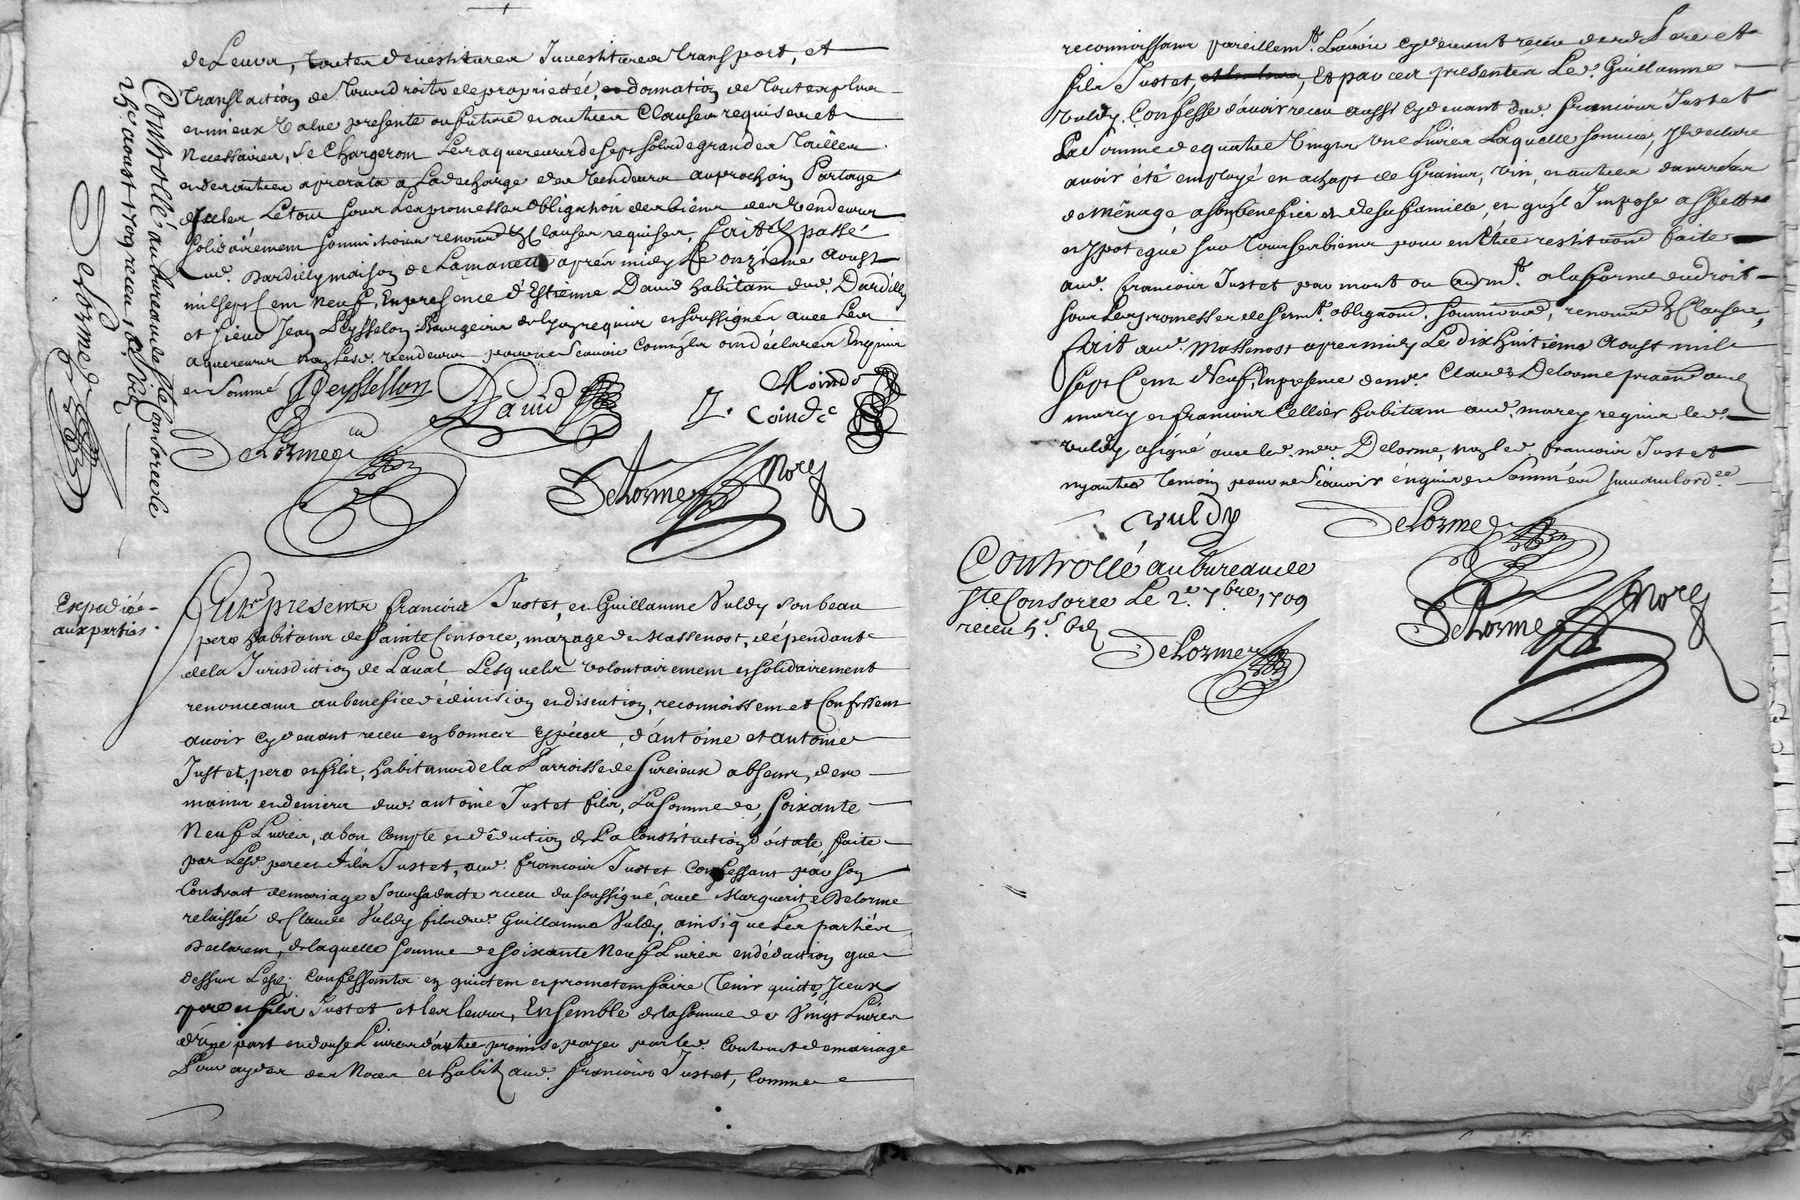 de Leurs, toutes devestitures Investitures transport, et
translaction de tous droits de propriecté, donnation de toute plus
et mieux value presente ou future et autres Clauses requises et
Necessaires, Se Chargeront Les aquereurs de sept sols de grandes tailles
et des autres a prorata a La decharge des vendeurs au prochain Partage
d'icelles Le tout sous Les promesses obligation des biens des vendeurs
solidairement soumissions renonc. & Clauses requises, fait & passé
aud. Dardilly maison de Lamanette apres midy Le onzieme Aoust
mil sept Cent neuf, En presence d'Estienne David habitant dud. Dardilly
et sieur Jean Peysselon Bourgeois de Lyon requis et soussignés avec Les
aquereurs non Les d. vendeurs pour ne scavoir comme ils ont déclarés Enquis
et sommé Peyssellon David J. Coinde Coindé
Delorme Delorme No.re
Controllé au bureau de Ste Consorce le
25e aoust 1709 receu
Delorme
Expedié
aux parties
furent presents francois Justet, et Guillaume Vuldy son beau
pere habitants de Sainte Consorce, mazage de Massenost, dépendant
de la Jurisdiction de Laval, Lesquels volontairement et solidairement
renonceant au benefice de division et discution, reconnoissent et Confessent
avoir cy devant receu en bonnes Espèces, d'antoine et antoine
Justet, pere et fils, habitans de la Parroisse de Surcieux absent, des
mains et deniers dud. antoine Justet fils, La somme de, soixante
Neuf Livres, a bon Compte et déduction de La Constitution dotale, faite
par Lesd. pere et fils Justet, aud. francois Justet Confessant par son
Contract de mariage sous sa datte receu du soussigné, avec Marguerite Delorme
relaissée de Claude Vuldy fils dud. Guillaume Vuldy, ainsi que Les parties
Declarent, de laquelle somme de soixante Neuf Livres en déduction que
dessus Lesd. confessants en quictent et promettent faire tenir quittes Iceux
pere et fils Justet et les leurs, Ensemble de la somme de Vingt Livres
d'une part et douse Livres d'autre promise payer par led. Contract de mariage
Pour ayder des Noces et habits aud. francois Justet, Comme
reconnoissant pareillemt. L'avoir cy devant receu desd. Pere et
fils Justet, Et par ces presentes Le d. Guillaume
Vuldy Confesse d'avoir receu aussi cy devant dud. francois Justet
La Somme de quatre Vingts une Livres Laquelle somme, Il declare
avoir été employé en achapt de Grains, vin, et autres danrées
de ménage a son benefice et de sa famille, et qu'il Impose affecte
et ypoteque sur tous ses biens pour en être restitution faite
aud. francois Justet par mort ou audmt. a la forme du droit
sous Les promesses de sermt. obligaons. soumissions, renonc. & Clauses,
fait aud. Massenost apres midy Le dix huitieme Aoust mil
Sept Cent Neuf, En presence de me. Claude Delorme praticien de
marcy et francois Cellier habitant aud. marcy requis le d.
Vuldy a signé avec led. me. Delorme, non led. francois Justet
ny autre temoin pour ne scavoir enquis et sommés suivant lord.ce
vuldy Delorme
Controllé au bureau de
Ste Consorce Le 2e. 7bre. 1709
receu
Delorme
Delorme No.re